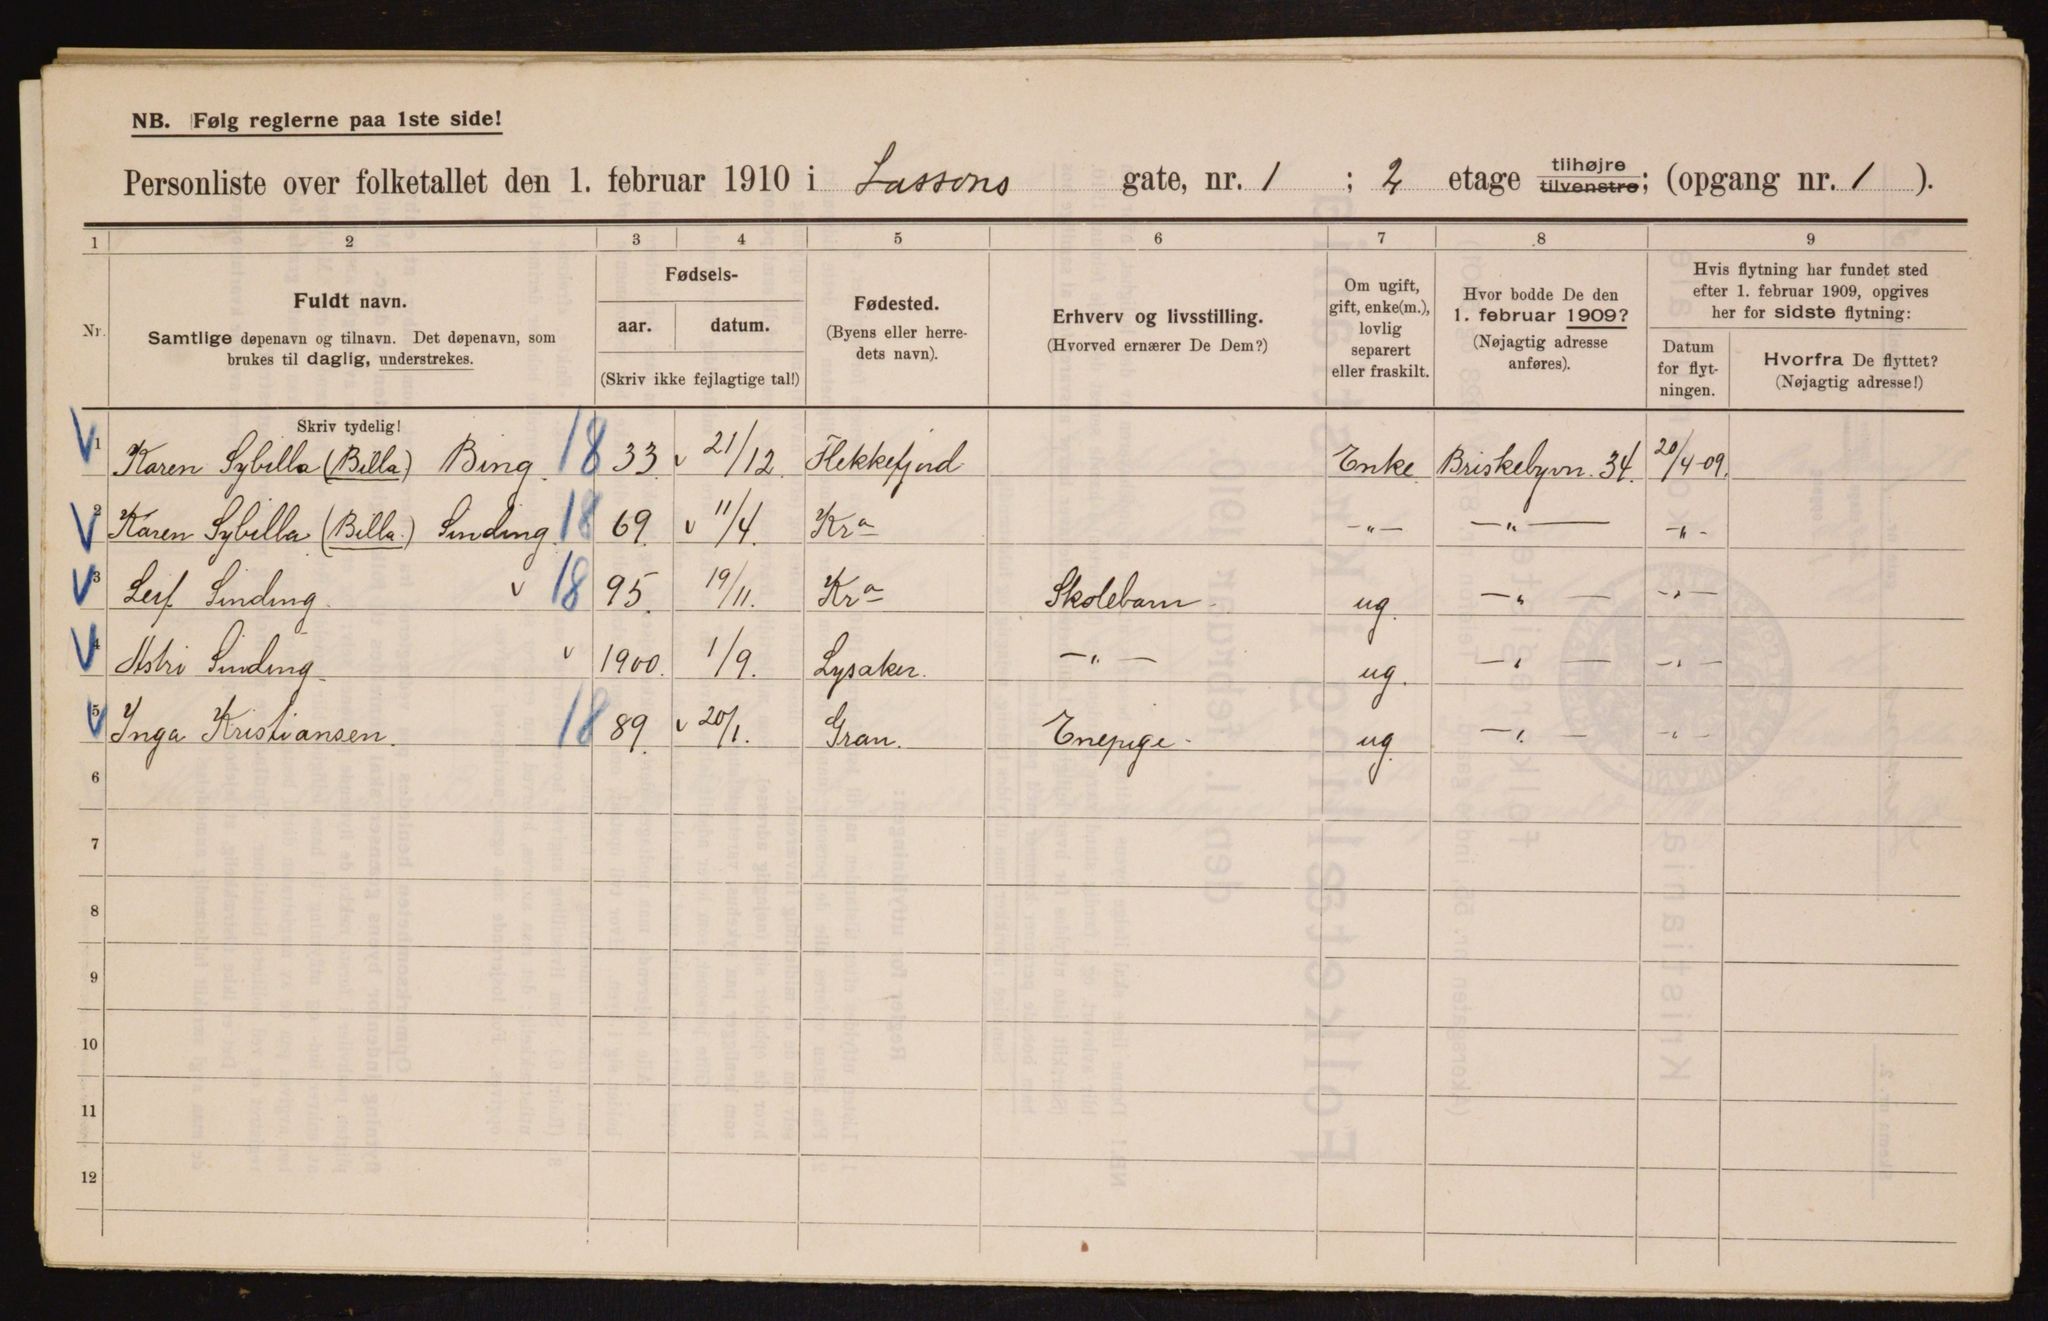 NB. Følg reglerne paa 1ste side!
Personliste over folketallet den 1. februar 1910 i Lassons gate, nr. 1 ; 2 etage tilhøjre tilvenstre; (opgang nr. 1 ).
1 2 3 4 5 6 7 8 9
Nr. Fuldt navn. Samtlige døpenavn og tilnavn. Det døpenavn, som brukes til daglig, understrekes.
Fødsels-
aar. datum.
(Skriv ikke fejlagtige tal!)
Fødested.
(Byens eller herredets navn).
Erhverv og livsstilling.
(Hvorved ernærer De Dem?)
Om ugift,
gift, enke(m.),
lovlig
separert
eller fraskilt.
Hvor bodde De den
1. februar 1909?
(Nøjagtig adresse
anføres).
Hvis flytning har fundet sted
efter 1. februar 1909, opgives
her for sidste flytning:
Datum
for flyt-
ningen.
Hvorfra De flyttet?
(Nøjagtig adresse!)
Skriv tydelig!
1 Karen Sybilla (Billa) Bing. 18 33 21/12. Flekkefjord Enke Briskebyvn. 34. 20/4-09.
2 Karen Sybilla (Billa.) Sinding 18 69. 11/4. Kra -"- -"- -"-
3 Leif Sinding. 18 95. 19/11. Kra Skolebarn - ug. -"- -"-
4 Astri Sinding. 1900. 1/9. Lysaker. -"- ug. -"- -"-
5 Inga Kristiansen. 18 89. 20/1. Gran. Enepige - ug. -"- -"-
6
7
8
9
10
11
12